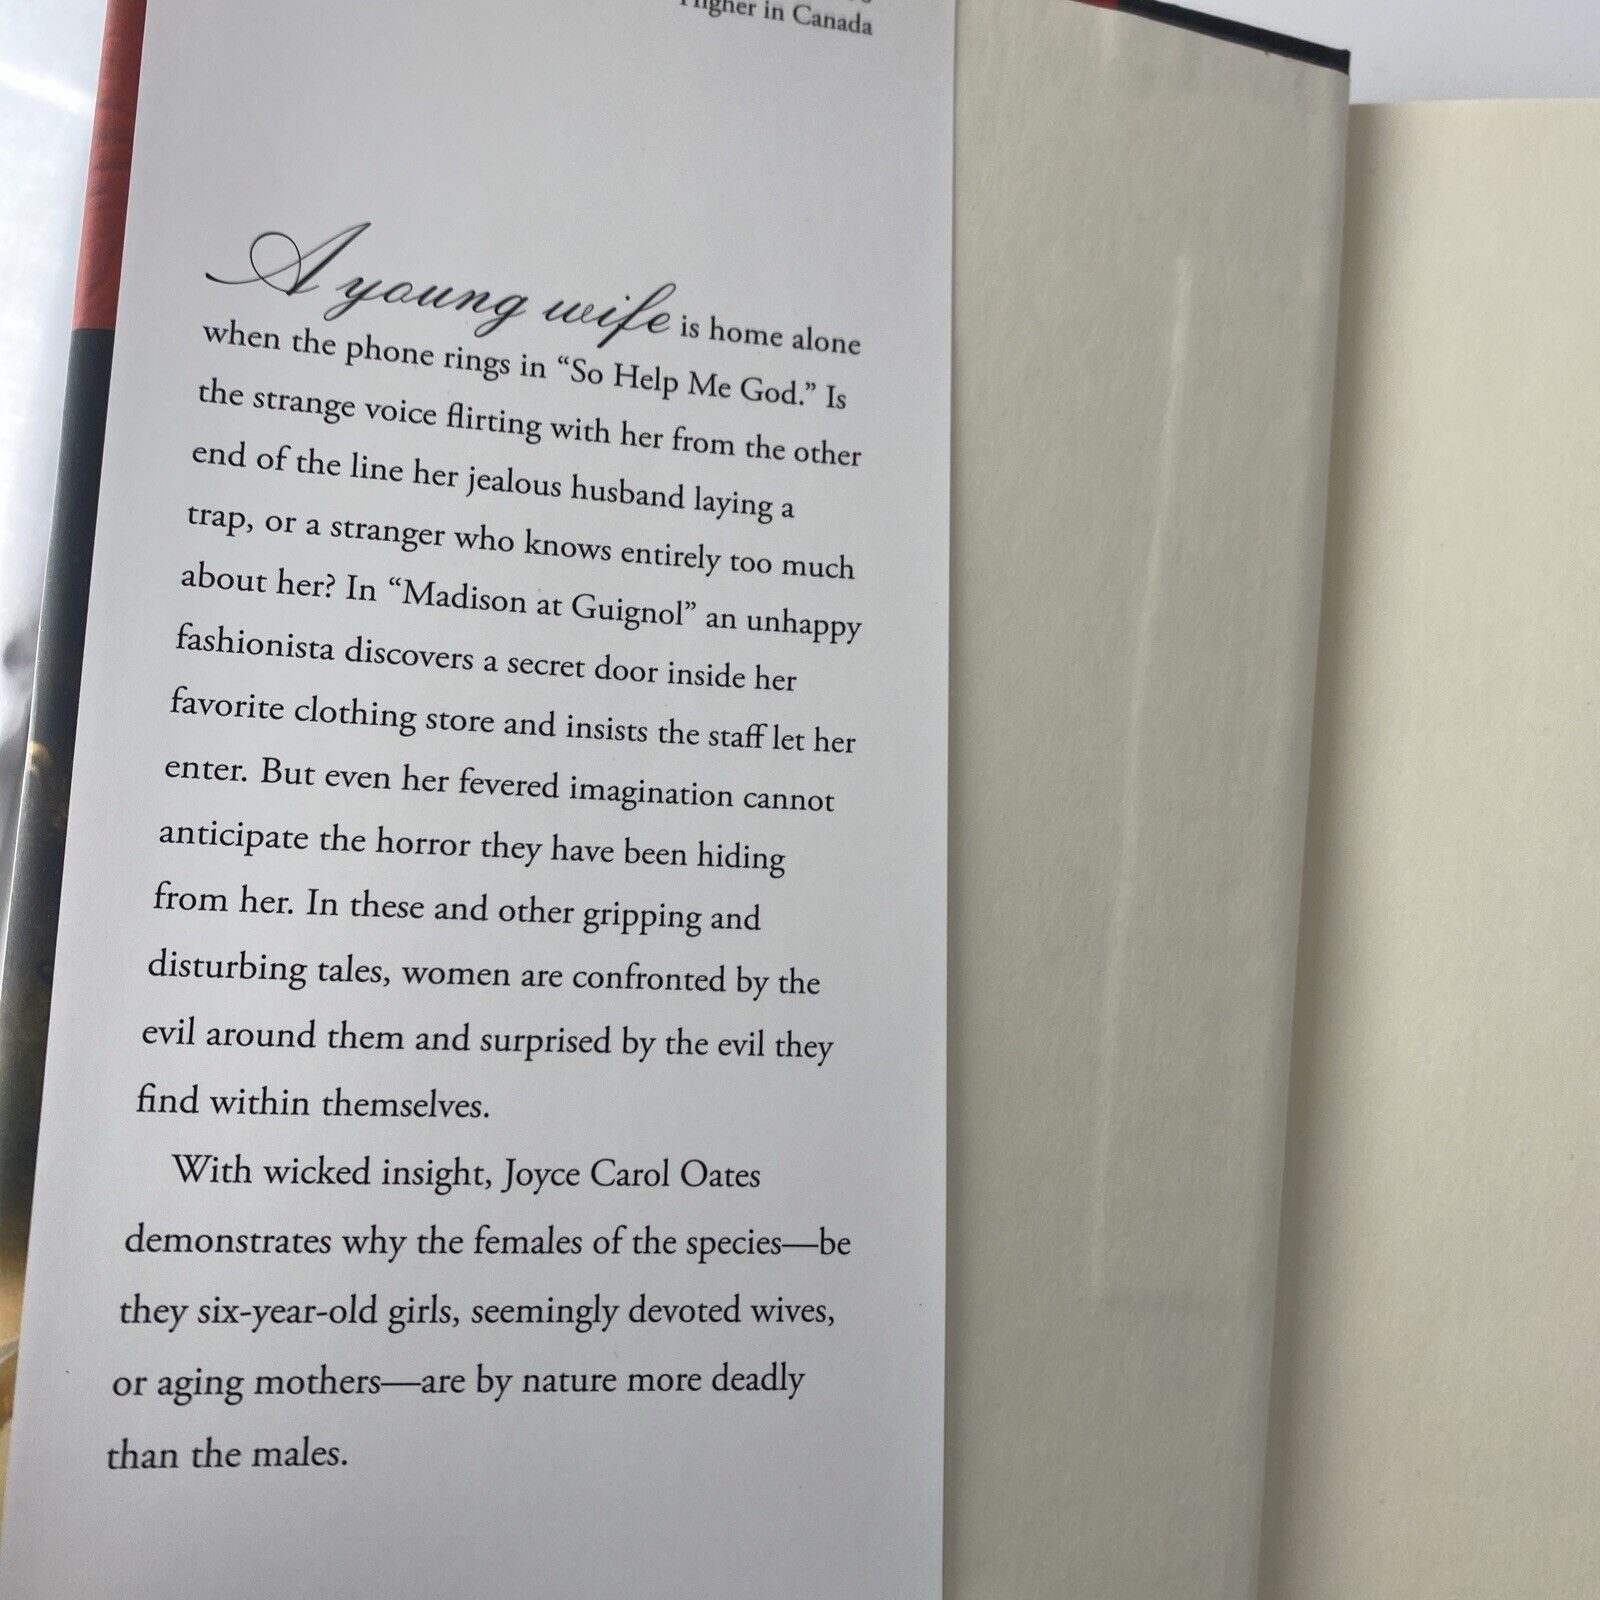 Higher in Canada
A young wife is home alone
when the phone rings in “So Help Me God.” Is
the strange voice flirting with her from the other
end of the line her jealous husband laying a
trap, or a stranger who knows entirely too much
about her? In “Madison at Guignol” an unhappy
fashionista discovers a secret door inside her
favorite clothing store and insists the staff let her
enter. But even her fevered imagination cannot
anticipate the horror they have been hiding
from her. In these and other gripping and
disturbing tales, women are confronted by the
evil around them and surprised by the evil they
find within themselves.
With wicked insight, Joyce Carol Oates
demonstrates why the females of the species—be
they six-year-old girls, seemingly devoted wives,
or aging mothers—are by nature more deadly
than the males.